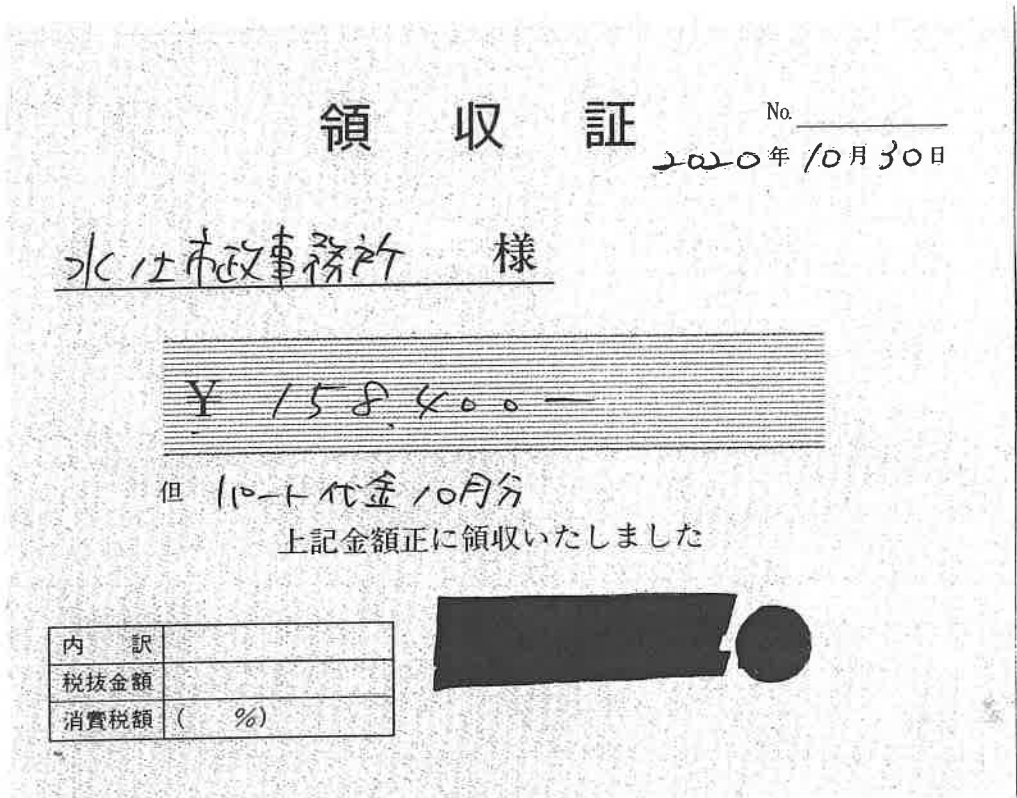 領収証
No.
2020年10月30日
水仕市政事務所 様
¥ 158,400—
但 パート代金10月分
上記金額正に領収いたしました
内訳
税抜金額
消費税額 ( %)